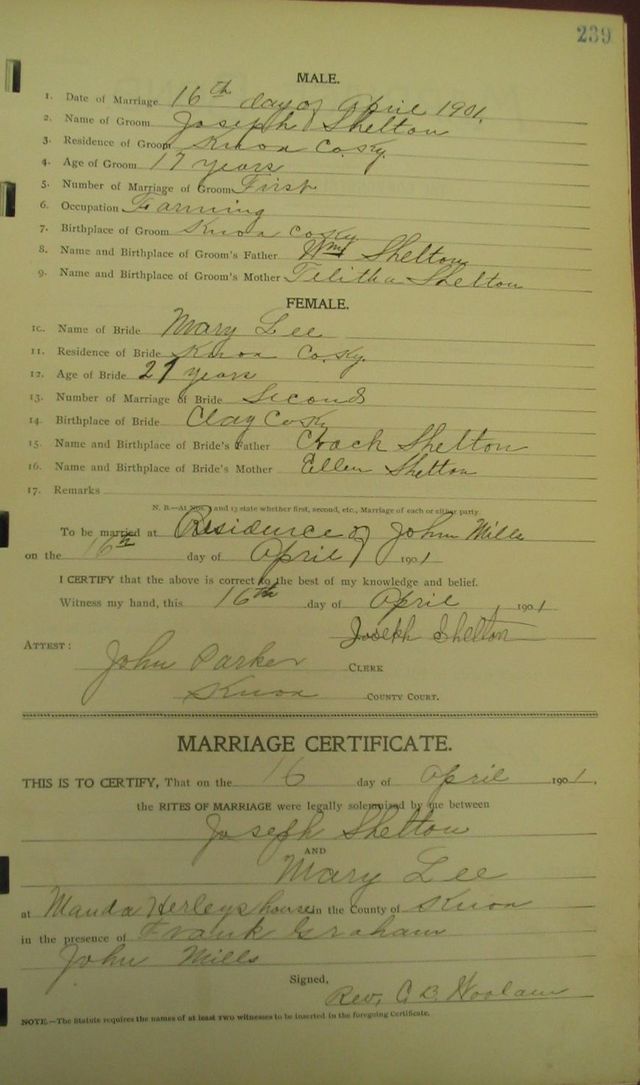 239
MALE.
1. Date of Marriage 16th day of April 1901.
2. Name of Groom Joseph Shelton
3. Residence of Groom Knox Co. Ky.
4. Age of Groom 17 years
5. Number of Marriage of Groom First
6. Occupation Farming
7. Birthplace of Groom Knox Co Ky
8. Name and Birthplace of Groom's Father Wm Shelton
9. Name and Birthplace of Groom's Mother Telitha Shelton
FEMALE.
10. Name of Bride Mary Lee
11. Residence of Bride Knox Co. Ky.
12. Age of Bride 27 years
13. Number of Marriage of Bride Second
14. Birthplace of Bride Clay Co Ky
15. Name and Birthplace of Bride's Father Shelton
16. Name and Birthplace of Bride's Mother Ellen Shelton
17. Remarks
N. B.—At Nos. 5 and 13 state whether first, second, etc., Marriage of each or either party.
To be married at Residence of John Mills
on the 16th day of April 1901
I CERTIFY that the above is correct to the best of my knowledge and belief.
Witness my hand, this 16th day of April, 1901
Joseph Shelton
ATTEST:
John Parker CLERK
Knox COUNTY COURT.
MARRIAGE CERTIFICATE.
THIS IS TO CERTIFY, That on the 16 day of April 1901.
the RITES OF MARRIAGE were legally solemnized by me between
Joseph Shelton
AND
Mary Lee
at Manda house in the County of Knox
in the presence of Frank Graham
John Mills
Signed,
Rev. C. B.
NOTE.—The Statute requires the names of at least two witnesses to be inserted in the foregoing Certificate.